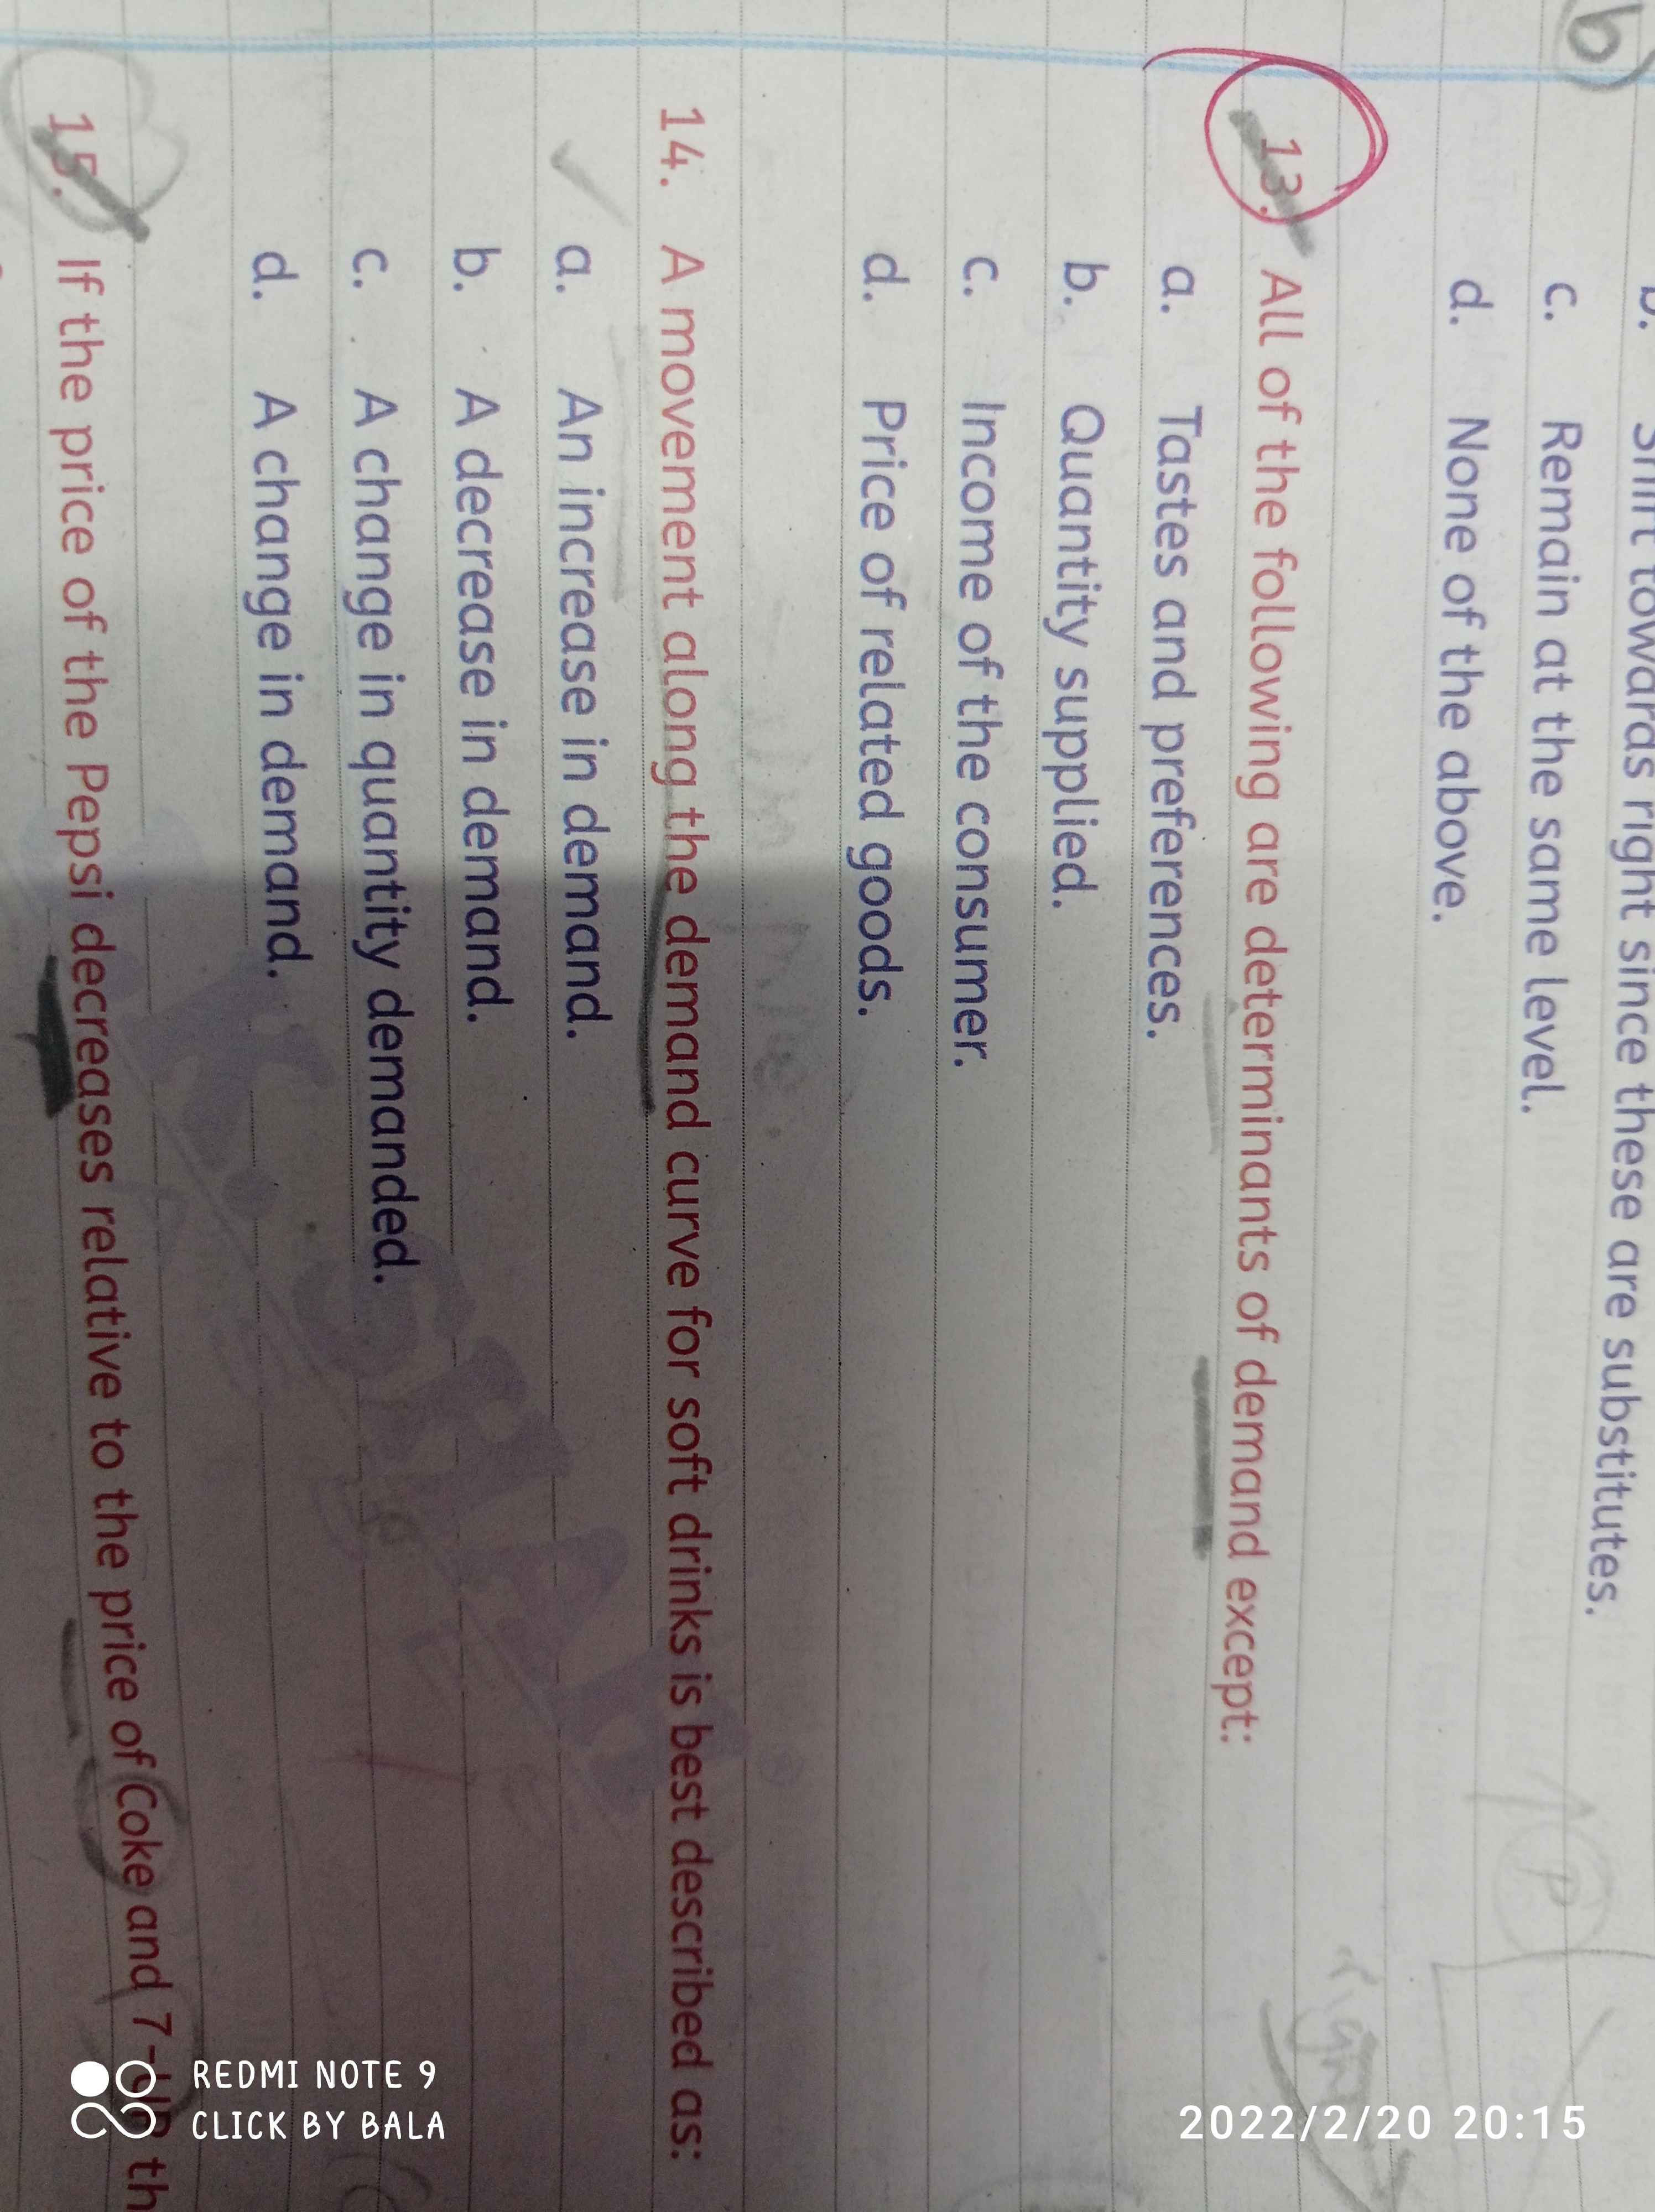 b)
b. Shift towards right since these are substitutes.
c. Remain at the same level.
d. None of the above.
13. All of the following are determinants of demand except:
a. Tastes and preferences.
b. Quantity supplied.
c. Income of the consumer.
d. Price of related goods.
14. A movement along the demand curve for soft drinks is best described as:
a. An increase in demand.
b. A decrease in demand.
c. A change in quantity demanded.
d. A change in demand.
15. If the price of the Pepsi decreases relative to the price of Coke and 7-UP th
P
REDMI NOTE 9
CLICK BY BALA
2022/2/20 20:15